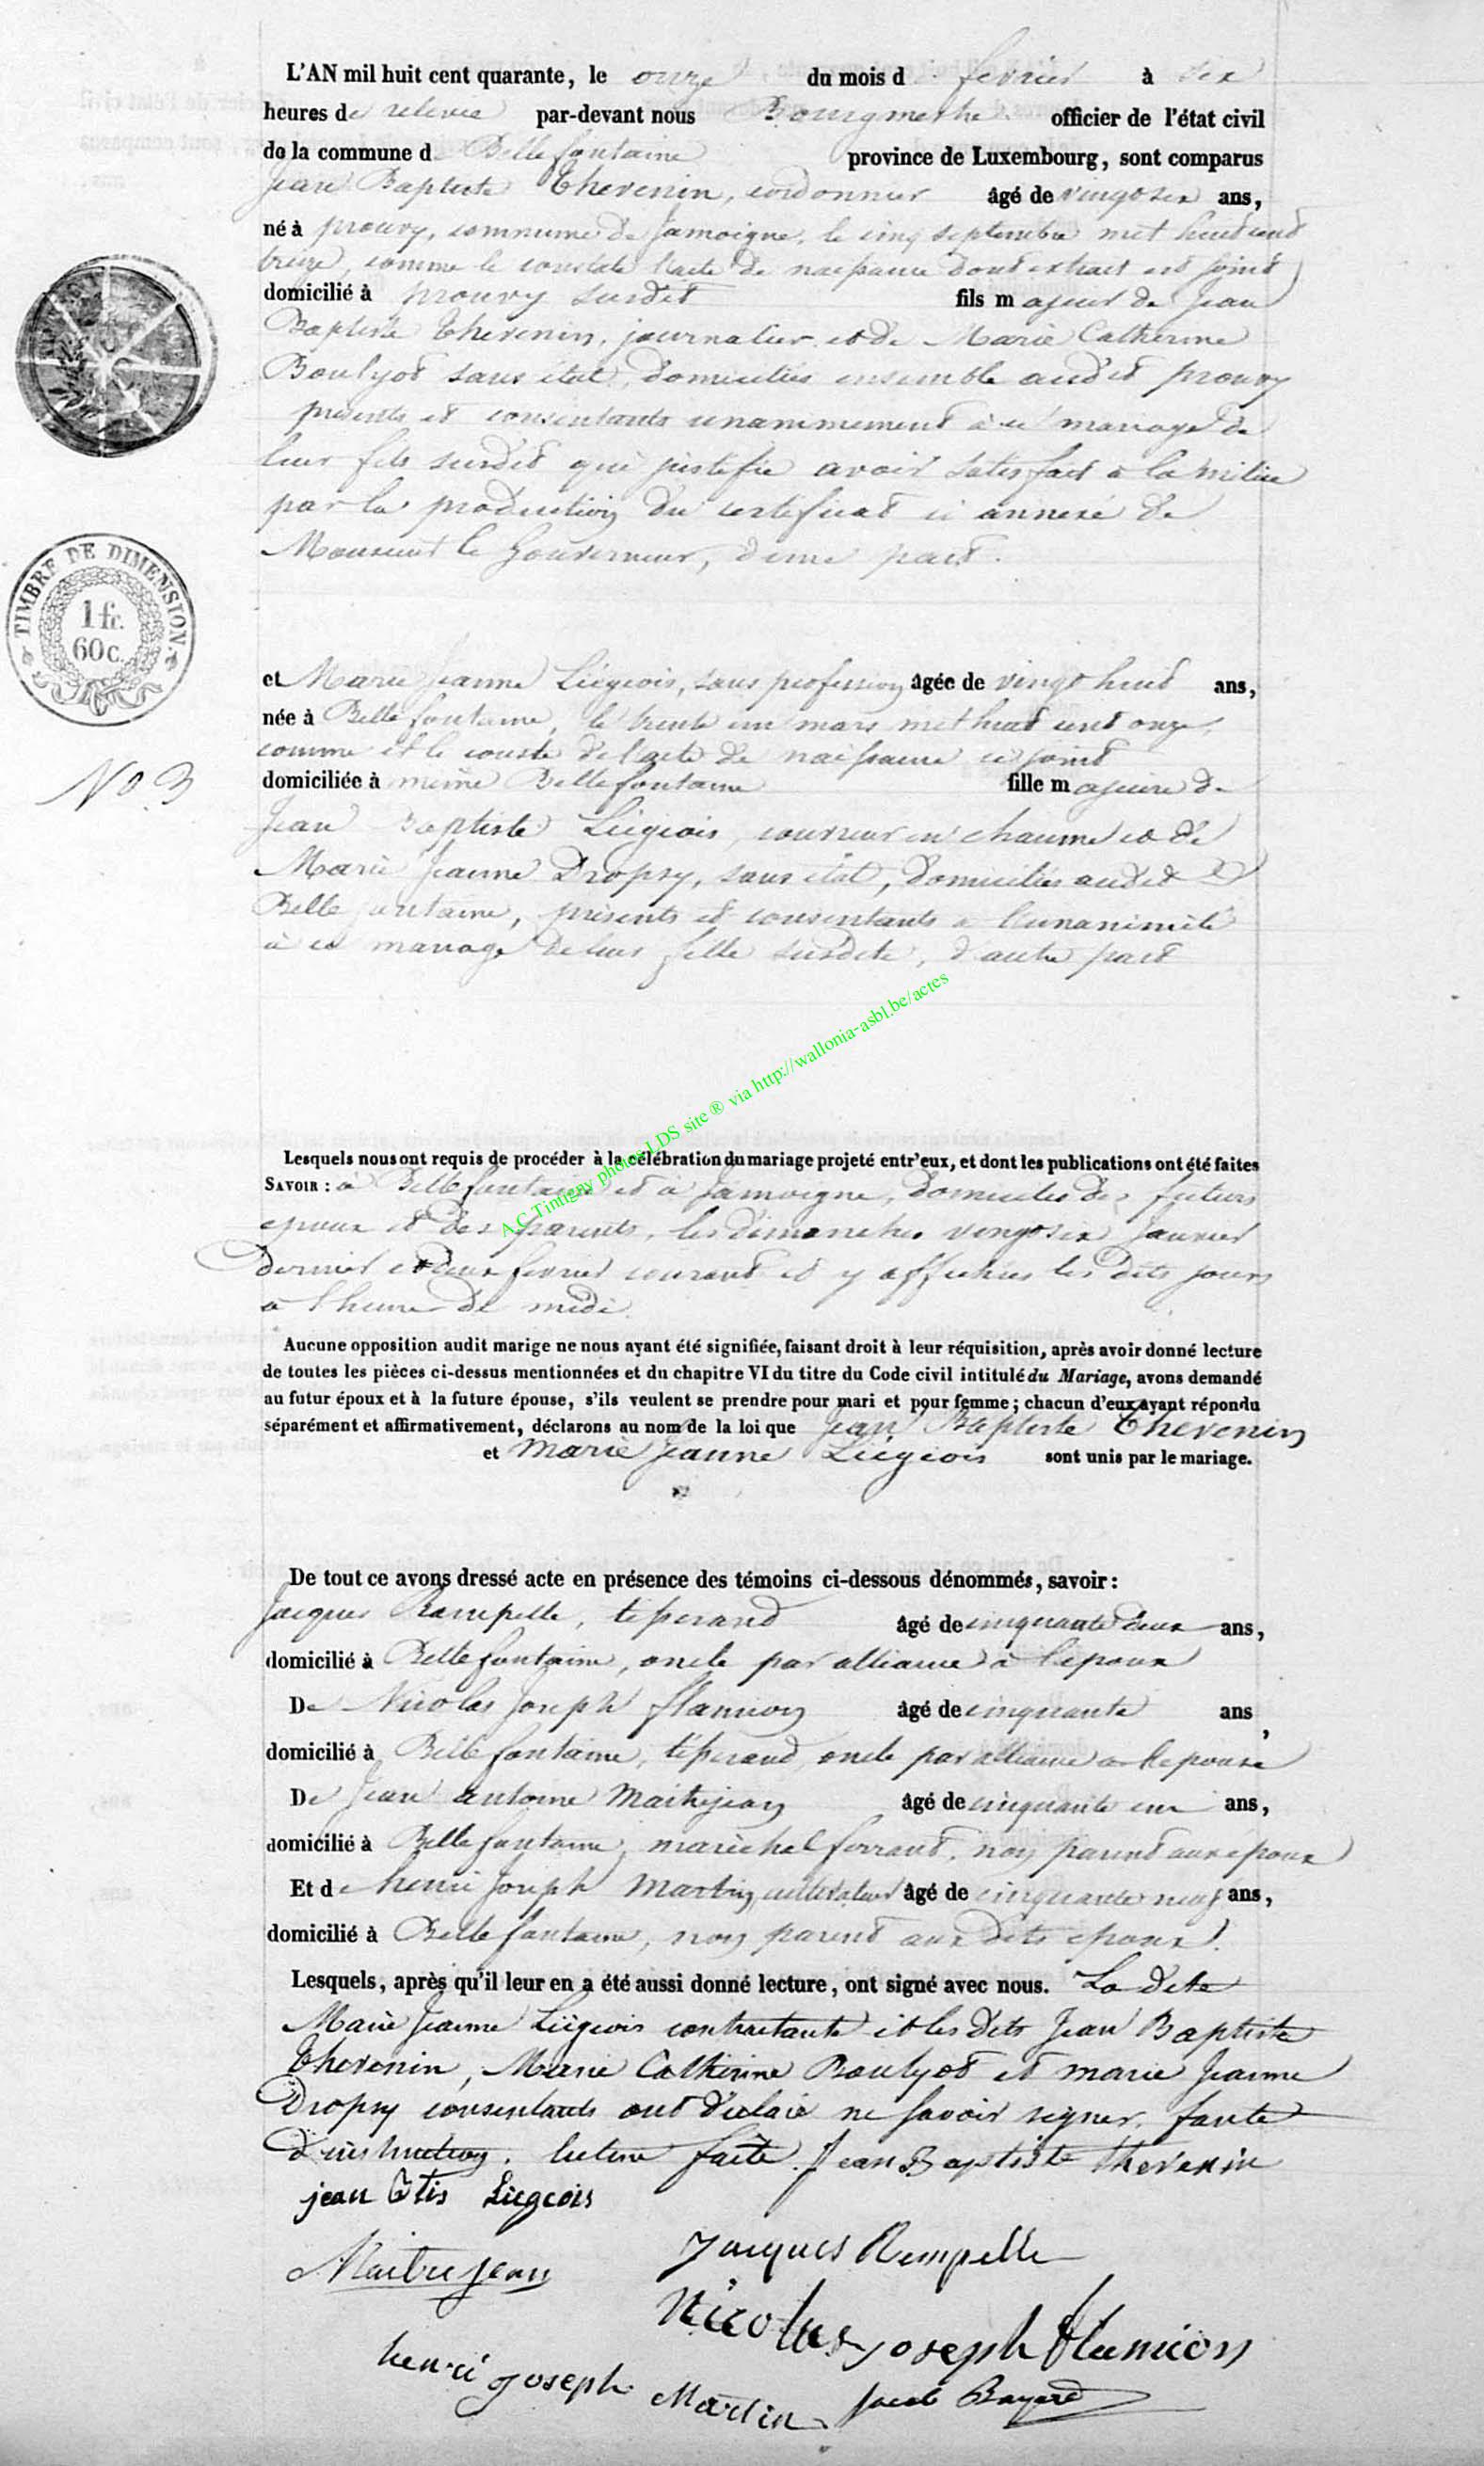 L'AN mil huit cent quarante, le onze du mois d fevrier à six
heures de relevée par-devant nous Bourgmestre officier de l'état civil
de la commune de Bellefontaine province de Luxembourg, sont comparus
Jean Baptiste Thevenin, cordonnier âgé de vingt six ans,
né à prouvy, commune de Jamoigne, le cinq septembre mil huit cent
treize, comme le constate l'acte de naissance dont extrait est joint
domicilié à prouvy susdit fils majeur de Jean
Baptiste Thevenin, journalier et de Marie Catherine
Boulyot sans état, domiciliés ensemble audit prouvy
présents et consentants unanimement à ce mariage de
leur fils susdit qui justifie avoir satisfait à la milice
par la production du certificat ci annexé de
Monsieur le Gouverneur, d'une part.
TIMBRE DE DIMENSION.
1 fr.
60 c.
et Marie Jeanne Liégeois, sans profession âgée de vingt huit ans,
née à Bellefontaine, le trente un mars mil huit cent onze,
comme il conste de l'acte de naissance ci joint
No 3
domiciliée à même Bellefontaine fille majeure de
Jean Baptiste Liégeois, couvreur en chaume et de
Marie Jeanne Dropsy, sans état, domiciliés audit
Bellefontaine, présents et consentants à l'unanimité
à ce mariage de leur fille susdite, d'autre part
A.C.Tintigny photos LDS site ® via http://wallonia-asbl.be/actes
Lesquels nous ont requis de procéder à la célébration du mariage projeté entr'eux, et dont les publications ont été faites
SAVOIR : à Bellefontaine et à Jamoigne, domiciles des futurs
epoux et des parents, les dimanches vingt six Janvier
dernier et deux fevrier courant et y affichées les dits jours
à l'heure de midi.
Aucune opposition audit marige ne nous ayant été signifiée, faisant droit à leur réquisition, après avoir donné lecture
de toutes les pièces ci-dessus mentionnées et du chapitre VI du titre du Code civil intitulé du Mariage, avons demandé
au futur époux et à la future épouse, s'ils veulent se prendre pour mari et pour femme ; chacun d'eux ayant répondu
séparément et affirmativement, déclarons au nom de la loi que Jean Baptiste Thevenin
et Marie Jeanne Liégeois sont unis par le mariage.
De tout ce avons dressé acte en présence des témoins ci-dessous dénommés, savoir :
Jacques Rampelle, tisserand âgé de cinquante deux ans,
domicilié à Bellefontaine, oncle par alliance à l'epoux
De Nicolas Joseph flamion âgé de cinquante ans,
domicilié à Bellefontaine, tisserand, oncle par alliance à l'epouse
De Jean antoine Maitrejean âgé de cinquante un ans,
domicilié à Bellefontaine, maréchal ferrant, non parent aux epoux
Et de henri Joseph Martin, cultivateur âgé de cinquante neuf ans,
domicilié à Bellefontaine, non parent aux dits epoux.
Lesquels, après qu'il leur en a été aussi donné lecture, ont signé avec nous. La dite
Marie Jeanne Liégeois contractante et les dits Jean Baptiste
Thevenin, Marie Catherine Boulyot et marie Jeanne
Dropsy consentants ont déclaré ne savoir signer, faute
d'instruction. lecture faite. Jean Baptiste thevenin
jean Btis Liegeois
Maitrejean Jacques Rempelle
Nicolas joseph flamion
henri joseph Martin Jacob Bayard